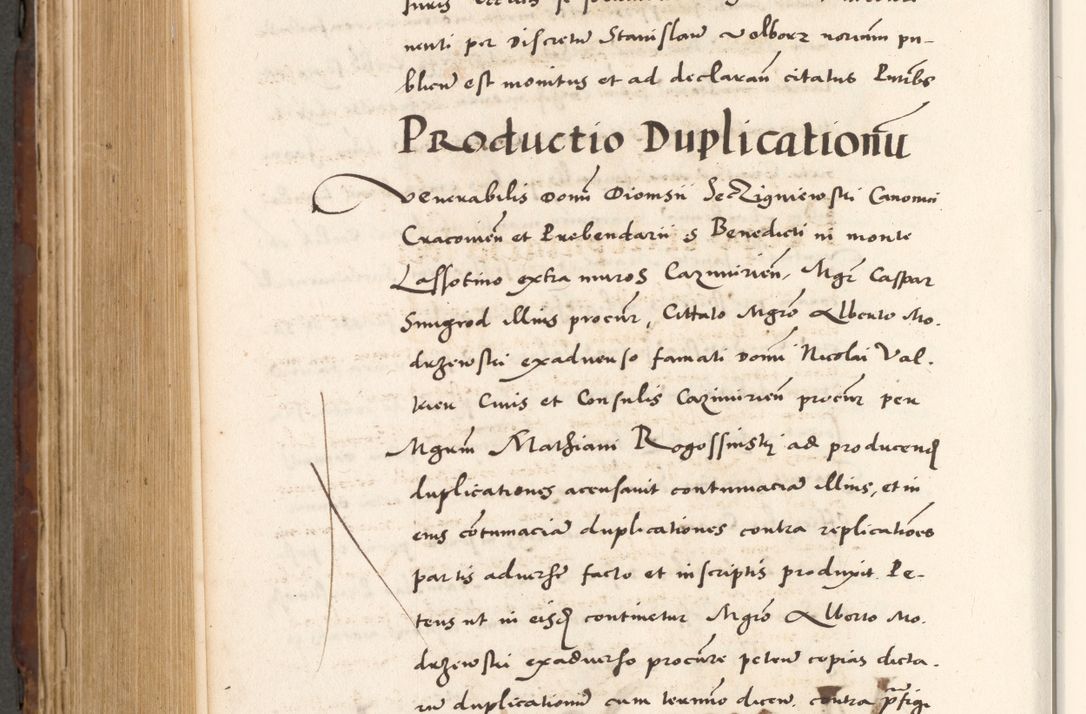 nenti per Discretū Stanislaū Volborz notariū pu-
blicū est monitus et ad declaran̄ citatus Pntibs
Productio Duplicationū
Venerabilis Domī Dionisii de Zigniewski Canonici
Cracovien̄ et Prebendarii S Benedicti in monte
Lassotino extra muros Cazimirien̄, Mgr̄ Caspar
Smigrod illius procur̄, Cittato Mgrō Alberto Mo.
drzewski exadverso famati Domī Nicolai Val.
Civis et Consulis Cazimirien̄ procur̄ per
Mgrum̄ Mathiam Rogossinski ad producend
duplicationes accusavit contumaciā illius, et in
eius cōtumaciā duplicationes contra replicatiōes
partis adverse facto et in scriptis produxit. Pe-
tens ut in eisd continetur Mgrō Alberto Mo.
drzewski exadverso procur̄e petere copias dicta.
rū duplicationū cum termīo dicen̄. contra p̄fig